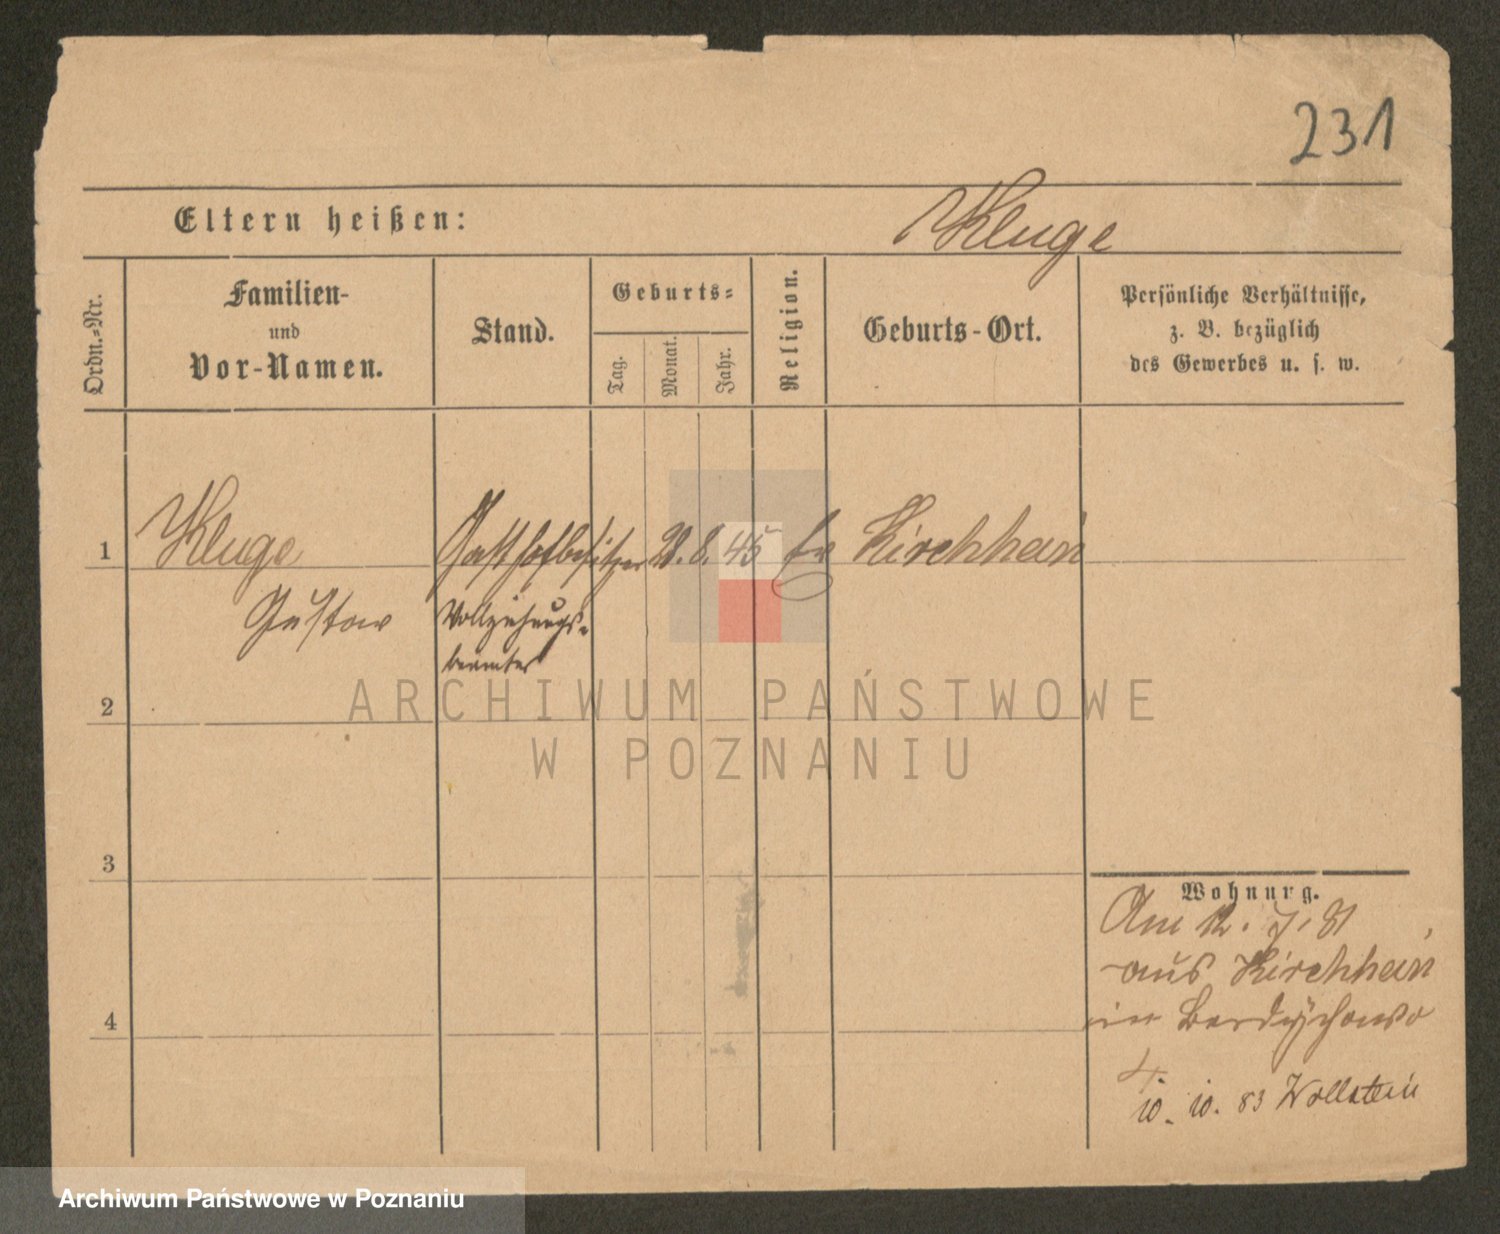 231
Eltern heißen:
Kluge
Ordn.-Nr.
Familien-
und
Vor-Namen.
Stand.
Geburts-
Tag.
Monat.
Jahr.
Religion.
Geburts-Ort.
Persönliche Verhältnisse,
z. B. bezüglich
des Gewerbes u. s. w.
1
Kluge
Gasthofbesitzer
28. 8. 45
ev
Kirchhain
Gustav
Vollziehungs-
beamter
ARCHIWUM PAŃSTWOWE
W POZNANIU
2
3
4
Wohnung.
Am 12. 7. 81
aus Kirchhain
in Berdychowo
10. 10. 83 Wollstein
Archiwum Państwowe w Poznaniu